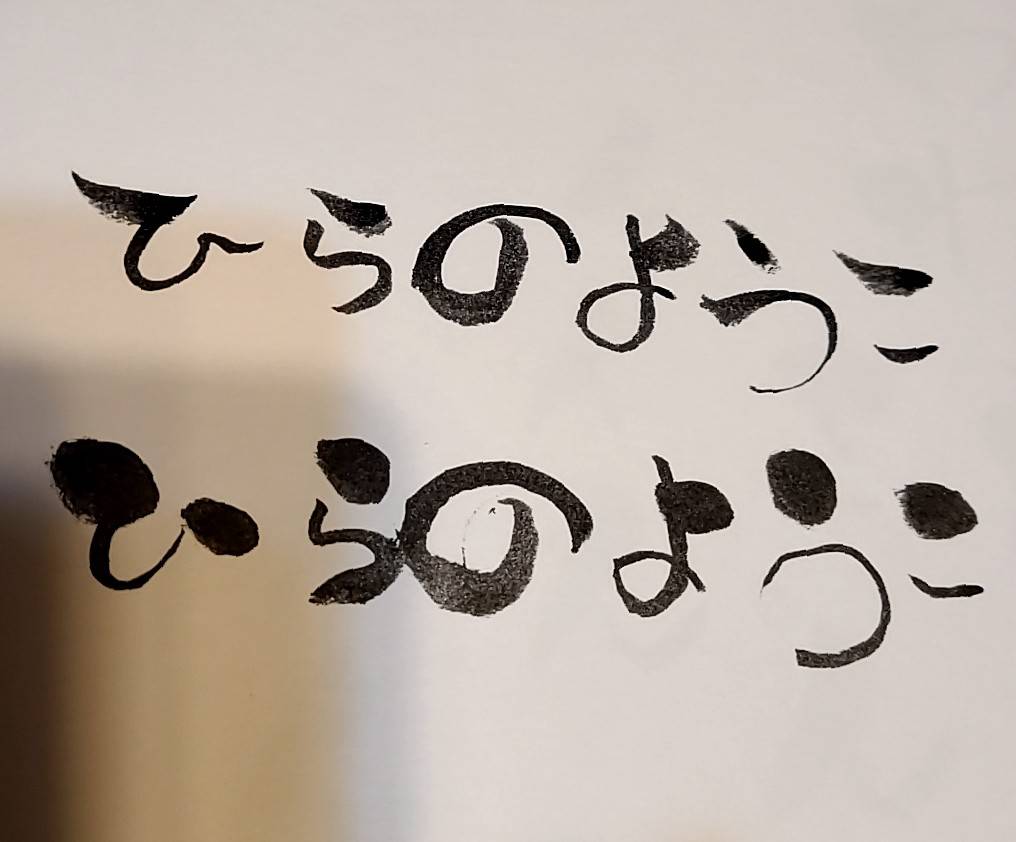 ひらのようこ
ひらのようこ